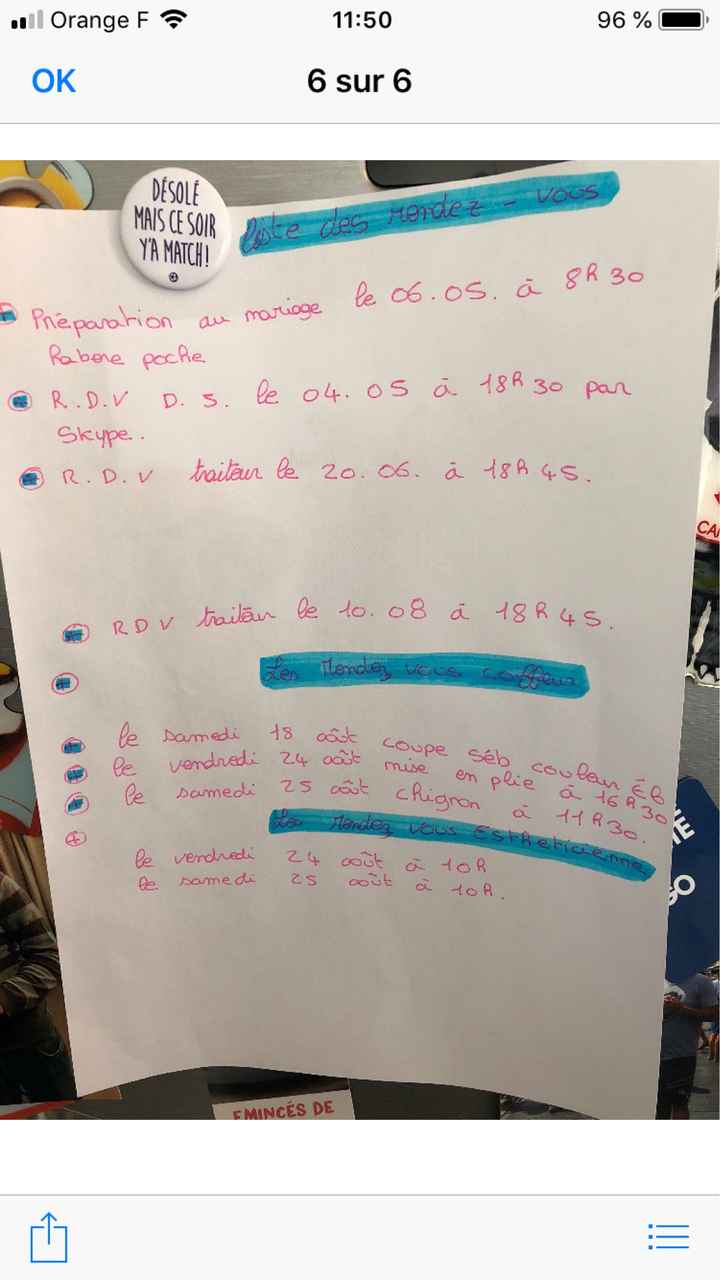 Orange F
11:50
96 %
OK
6 sur 6
DÉSOLÉ
MAIS CE SOIR
Y'A MATCH!
liste des rendez - vous
Préparation au mariage le 06.05. à 8h30
Rabene poche
R.D.V D.S. le 04.05 à 18h30 par
Skype..
R.D.V traiteur le 20.06. à 18h45.
RDV traiteur le 10.08 à 18h45.
Les Rendez vous coiffeur
le samedi 18 août coupe séb couleur
le vendredi 24 août mise en plie à 16h30
le samedi 25 août chignon à 11h30.
Les Rendez vous Esthéticienne
le vendredi 24 août à 10h
le samedi 25 août à 10h.
EMINCÉS DE